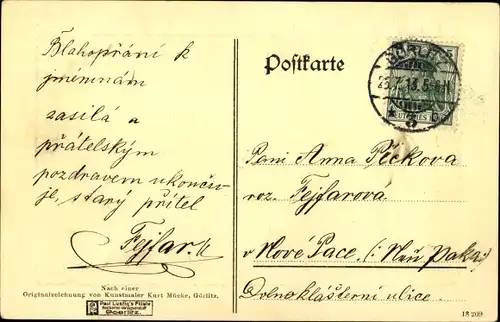 Blahopřání k
jmeninám
zasílá a
přátelským
pozdravem ukonču-
je, starý přítel
Fejfar.
Nach einer
Originalzeichnung von Kunstmaler Kurt Mücke, Görlitz.
Paul Lustig's Filiale
Görlitz.
Postkarte
GÖRLITZ
25.7.13.5-6N
Paní Anna Pěckova
roz. Fejfarová
v Nové Pace. (: Neu Paka:)
Dolnoklášterní ulice.
18 209